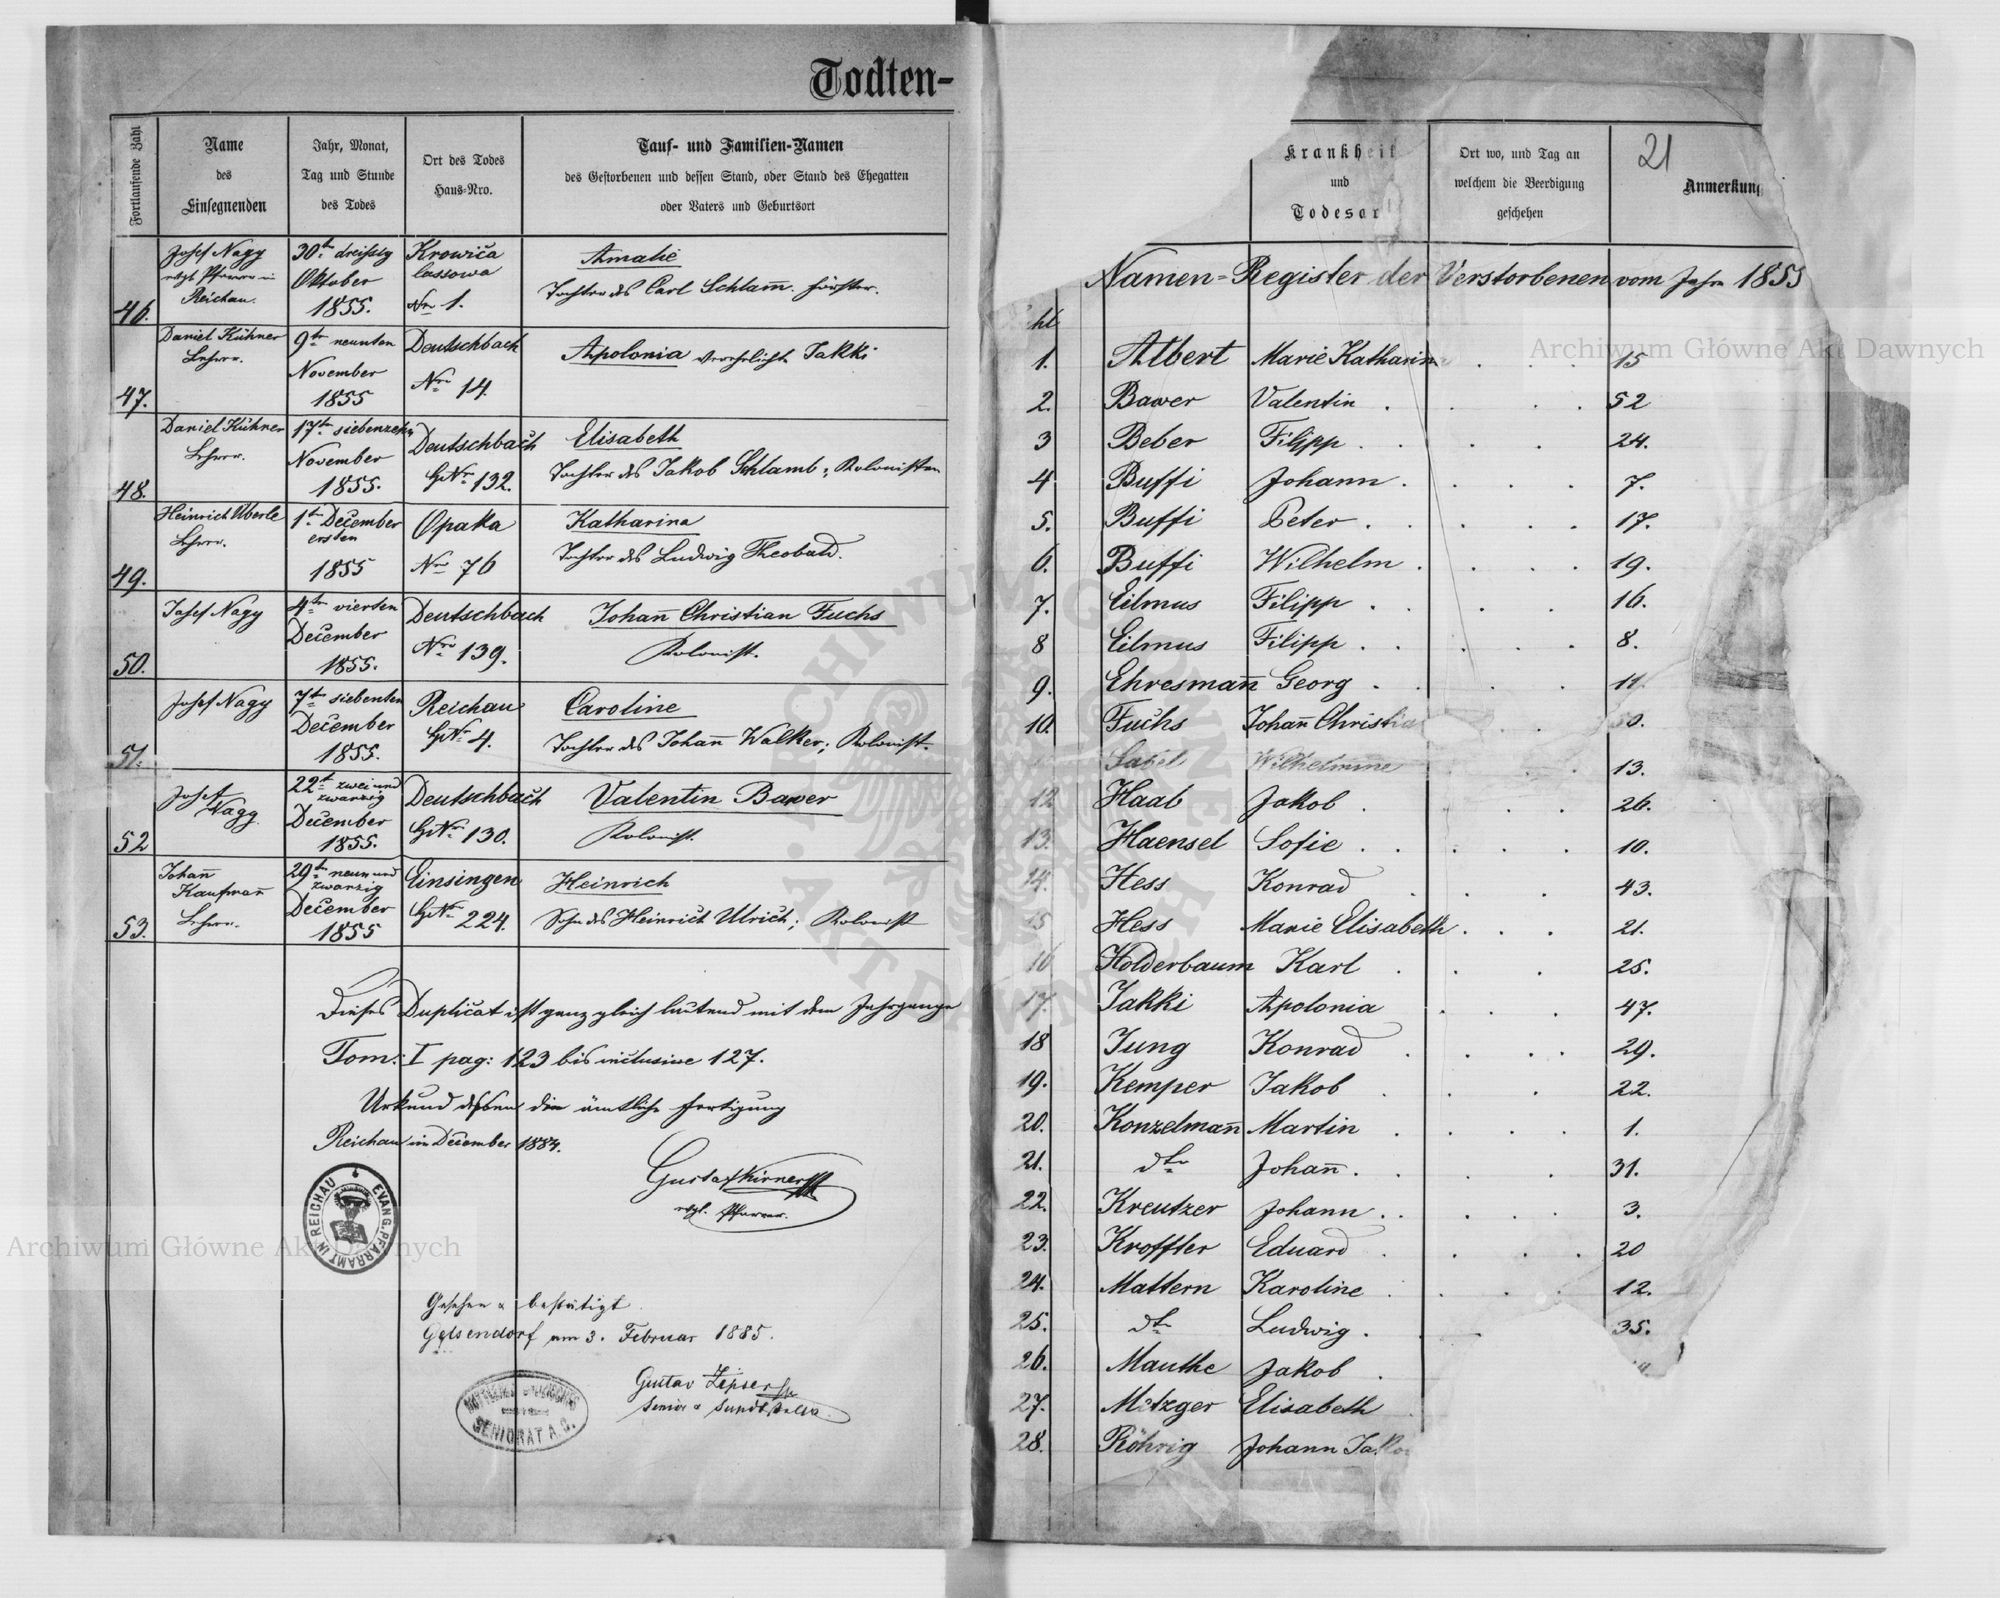 Todten-
Fortlaufende Zahl
Name
des
Einsegnenden
Jahr, Monat,
Tag und Stunde
des Todes
Ort des Todes
Haus-Nro.
Tauf- und Familien-Namen
des Gestorbenen und dessen Stand, oder Stand des Ehegatten
oder Vaters und Geburtsort
46.
Josef Nagy
Pfarrer in
Reichau.
30t. dreißig
Oktober
1855.
Krowica
lassowa
Nro 1.
Amalie
Tochter des Carl Schlam̅. Förster.
47.
Daniel Kühner
Lehrer.
9te neunten
November
1855
Deutschbach
Nro 14.
Apolonia verehelichte Jakki
48.
Daniel Kühner
Lehrer.
17te siebenzehn
November
1855.
Deutschbach
GNr 132.
Elisabeth
Tochter des Jakob Schlamb; Kolonisten
49.
Heinrich Aberle
Lehrer.
1te December
ersten
1855
Opaka
Nro 76
Katharina
Tochter des Ludwig Theobald.
50.
Josef Nagy
4te vierten
December
1855.
Deutschbach
Nro 139.
Johan̅ Christian Fuchs
Kolonist.
51.
Josef Nagy
7te siebenten
December
1855.
Reichau
GNr 4.
Caroline
Tochter des Johan̅ Walker; Kolonist.
52
Josef
Nagy.
22te zwei und
zwanzig
December
1855.
Deutschbach
GNr 130.
Valentin Bawer
Kolonist.
53.
Johan̅
Kaufman̅
Lehrer.
29te neun und
zwanzig
December
1855
Einsingen
GNr 224.
Heinrich
Sohn des Heinrich Ulrich; Kolonist
Dieses Duplicat ist ganz gleich lautend mit dem Jahrgange
Tom: I pag: 123 bis inclusive 127.
Urkund dessen die ämtliche Fertigung
Reichau im December 1884.
Gustaf Kirner
Pfarrer.
EVANG. PFARRAMT IN REICHAU
Gesehen & bestätigt
Gelsendorf am 3. Februar 1885.
Gustav Zipser
Senior &
SENIORAT A.C.
Krankheit
und
Todesar
Ort wo, und Tag an
welchem die Beerdigung
geschehen
21
Anmerkung
Namen-Register der Verstorbenen vom Jahre 1855
1. Albert Marie Katharina 15
2. Bawer Valentin 52
3 Beber Filipp 24.
4 Buffi Johann 7.
5. Buffi Peter 17.
6. Buffi Wilhelm 19.
7. Eilmus Filipp 16.
8 Eilmus Filipp 8.
9. Ehresman̅ Georg 11.
10. Fuchs Johan̅ Christia 50.
Wilhelmine 13.
12 Haab Jakob 26.
13. Haensel Sofie 10.
14. Hess Konrad 43.
15 Hess Marie Elisabeth 21.
16 Holderbaum Karl 25.
17. Jakki Apolonia 47.
18 Jung Konrad 29.
19. Kemper Jakob 22.
20. Konzelman̅ Martin 1.
21. dto Johan̅ 31.
22. Kreutzer Johann 3.
23. Kroffter Eduard 20
24. Mattern Karoline 12.
25. dto Ludwig 35.
26. Mauthe Jakob
27. Metzger Elisabeth
28. Röhrig Johann Jako
Archiwum Główne Akt Dawnych
Archiwum Główne Akt Dawnych
ARCHIWUM GŁÓWNE AKT DAWNYCH